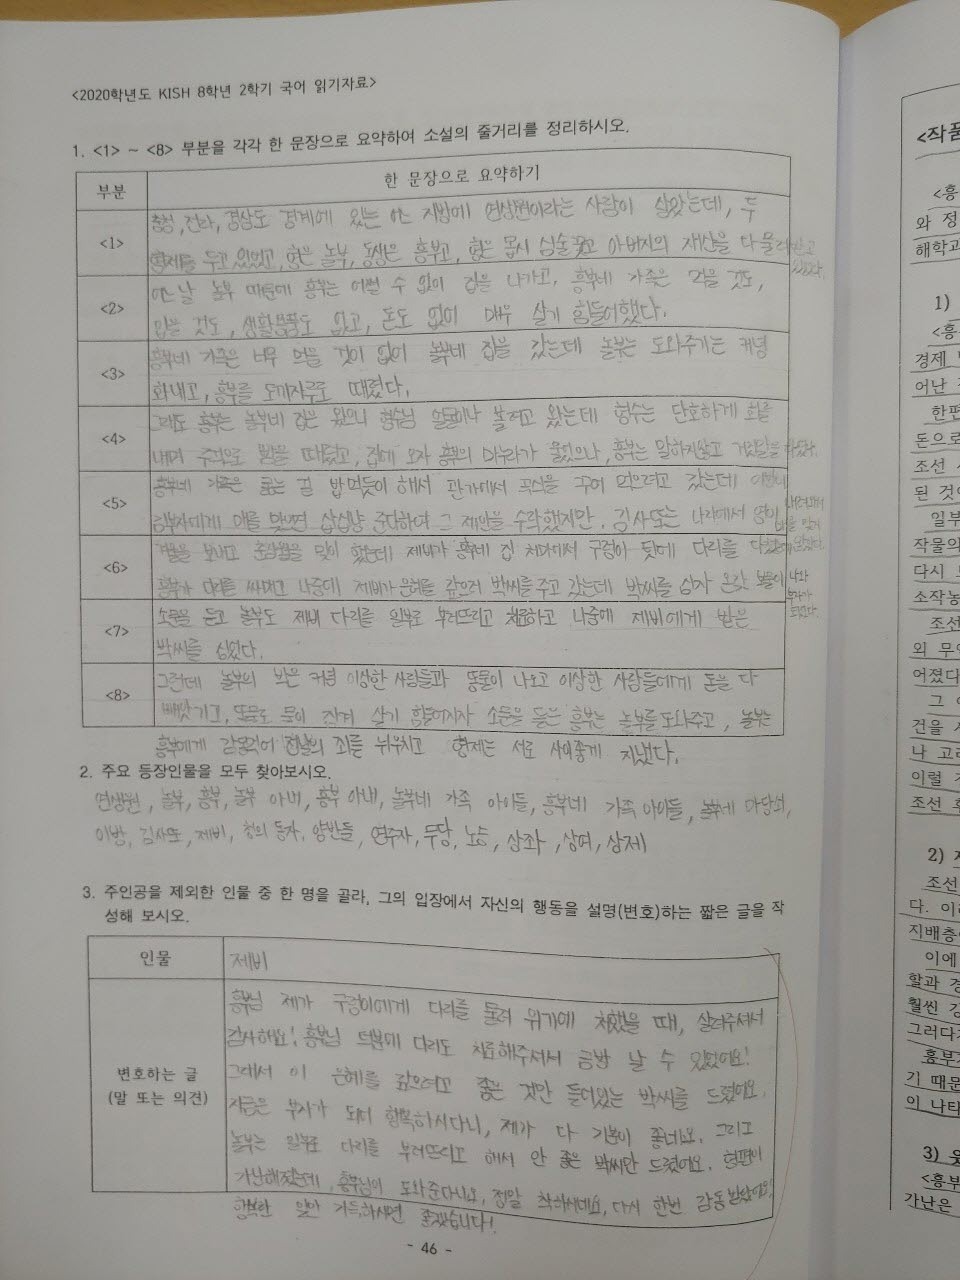 <2020학년도 KISH 8학년 2학기 국어 읽기자료>
1. <1> ~ <8> 부분을 각각 한 문장으로 요약하여 소설의 줄거리를 정리하시오.
부분
한 문장으로 요약하기
<1>
충청, 전라, 경상도 경계에 있는 어느 지방에 연생원이라는 사람이 살았는데, 두
형제를 두고 있었고, 형은 놀부, 동생은 흥부고, 형은 몹시 심술궂고 아버지의 재산을 다 물려받고
있었다.
<2>
어느날 놀부 때문에 흥부는 어쩔 수 없이 집을 나가고, 흥부네 가족은 먹을 것도,
입을 것도, 생활용품도 없고, 돈도 없이 매우 살기 힘들어했다.
<3>
흥부네 가족은 너무 먹을 것이 없어 놀부네 집을 갔는데 놀부는 도와주기는 커녕
화내고, 흥부를 도끼자루로 때렸다.
<4>
그래도 흥부는 놀부네 집은 왔으니 형수님 얼굴이나 보려고 왔는데 형수는 단호하게 화를
내며 주걱으로 뺨을 때렸고, 집에 오자 흥부의 마누라가 울었으나, 흥부는 말하지않고 거짓말을 하였다.
<5>
흥부네 가족은 굶는 걸 밥먹듯이 해서 관가에서 곡식을 꾸어 먹으려고 갔는데 이방이
김부자에게 매를 맞으면 삼십냥 준다하여 그 제안을 수락했지만, 김사또는 나라에서 명이 내려와서
매를 맞지
못했다.
<6>
겨울을 보내고 춘삼월을 맞이 했는데 제비가 흥부네 집 처마에서 구렁이 탓에 다리를 다쳤는데
흥부가 다리를 싸매고 나중에 제비가 은혜를 갚으려 박씨를 주고 갔는데 박씨를 심자 온갖 보물이 나와
부자가
되었다.
<7>
소문을 듣고 놀부도 제비 다리를 일부로 부러뜨리고 치료하고 나중에 제비에게 받은
박씨를 심었다.
<8>
그런데 놀부의 박은 커녕 이상한 사람들과 똥물이 나오고 이상한 사람들에게 돈을 다
빼앗기고, 똥물도 묻어 잔계 살기 힘들어지자 소문을 들은 흥부는 놀부를 도와주고, 놀부는
흥부에게 감동먹어 전날의 죄를 뉘우치고 형제는 서로 사이좋게 지냈다.
2. 주요 등장인물을 모두 찾아보시오.
연생원, 놀부, 흥부, 놀부 아내, 흥부 아내, 놀부네 가족 아이들, 흥부네 가족 아이들, 놀부네 마당쇠,
이방, 김사또, 제비, 동자, 양반들, 연주자, 무당, 노승, 상좌, 상여, 상제
3. 주인공을 제외한 인물 중 한 명을 골라, 그의 입장에서 자신의 행동을 설명(변호)하는 짧은 글을 작
성해 보시오.
인물
제비
변호하는 글
(말 또는 의견)
흥부님 제가 구렁이에게 다리를 물려 위기에 처했을 때, 살려주셔서
감사해요! 흥부님 덕분에 다리도 치료해주셔서 금방 날 수 있었어요!
그래서 이 은혜를 갚으려고 좋은 것만 들어있는 박씨를 드렸어요.
지금은 부자가 되어 행복하시다니, 제가 다 기분이 좋네요. 그리고
놀부는 일부로 다리를 부러뜨리고 해서 안 좋은 박씨만 드렸어요. 형편이
가난해졌는데, 흥부님이 도와준다니요, 정말 착하시네요, 다시 한번 감동 받았어요!
행복한 일만 가득하시면 좋겠습니다!
- 46 -
<작품
<흥
와 정
해학과
1)
<흥
경제
어난
한편
돈으로
조선 시
된 것이
일부
작물의
다시
소작농
조선
외 무
어졌다
그
건을
나 고
이럴
조선 후
2)
조선
다. 이러
지배층
이에
할과 경
훨씬 강
그러다
흥부
기 때문
의 나타
3) 웃
<흥부
가난은